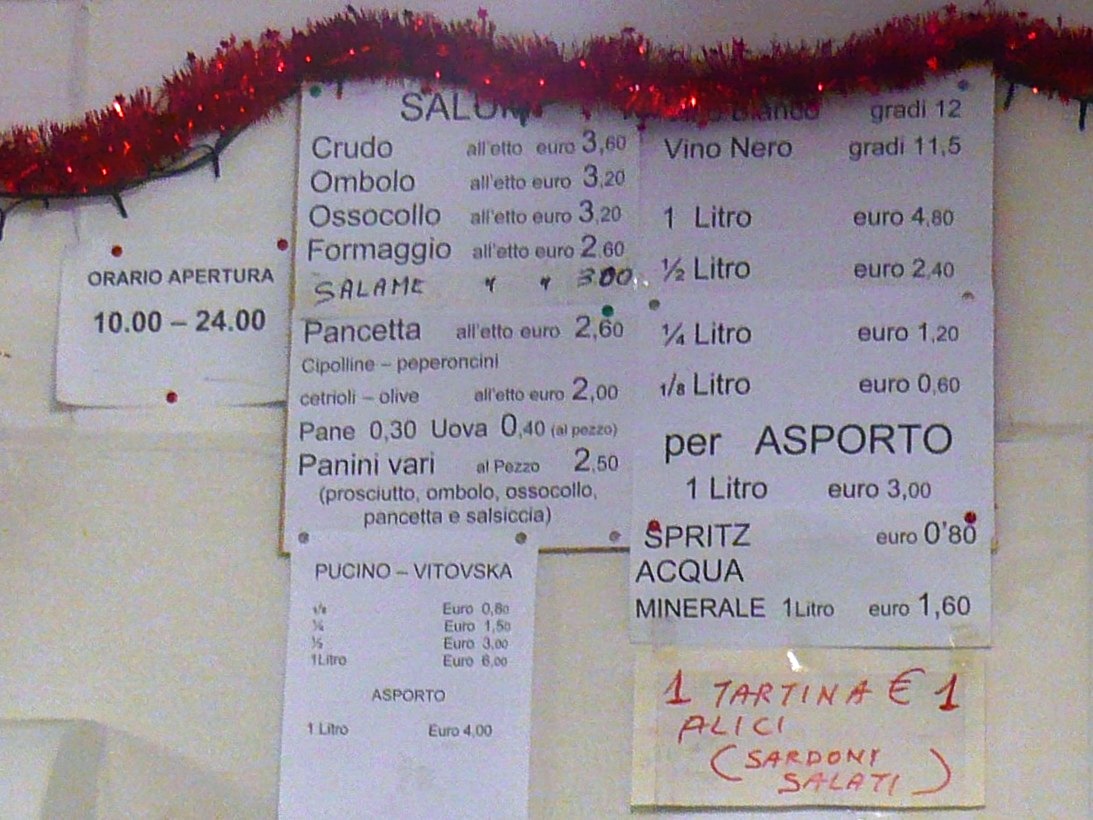 ORARIO APERTURA
10.00 – 24.00
Crudo all'etto euro 3,60
Ombolo all'etto euro 3,20
Ossocollo all'etto euro 3,20
Formaggio all'etto euro 2,60
SALAME " " 3,00
Pancetta all'etto euro 2,60
Cipolline – peperoncini
cetrioli – olive all'etto euro 2,00
Pane 0,30 Uova 0,40 (al pezzo)
Panini vari al Pezzo 2,50
(prosciutto, ombolo, ossocollo,
pancetta e salsiccia)
PUCINO – VITOVSKA
1/8 Euro 0,80
¼ Euro 1,50
½ Euro 3,00
1Litro Euro 6,00
ASPORTO
1 Litro Euro 4,00
Bianco gradi 12
Vino Nero gradi 11,5
1 Litro euro 4,80
½ Litro euro 2,40
¼ Litro euro 1,20
1/8 Litro euro 0,60
per ASPORTO
1 Litro euro 3,00
SPRITZ euro 0'80
ACQUA
MINERALE 1Litro euro 1,60
1 TARTINA € 1
ALICI
(SARDONI
SALATI)